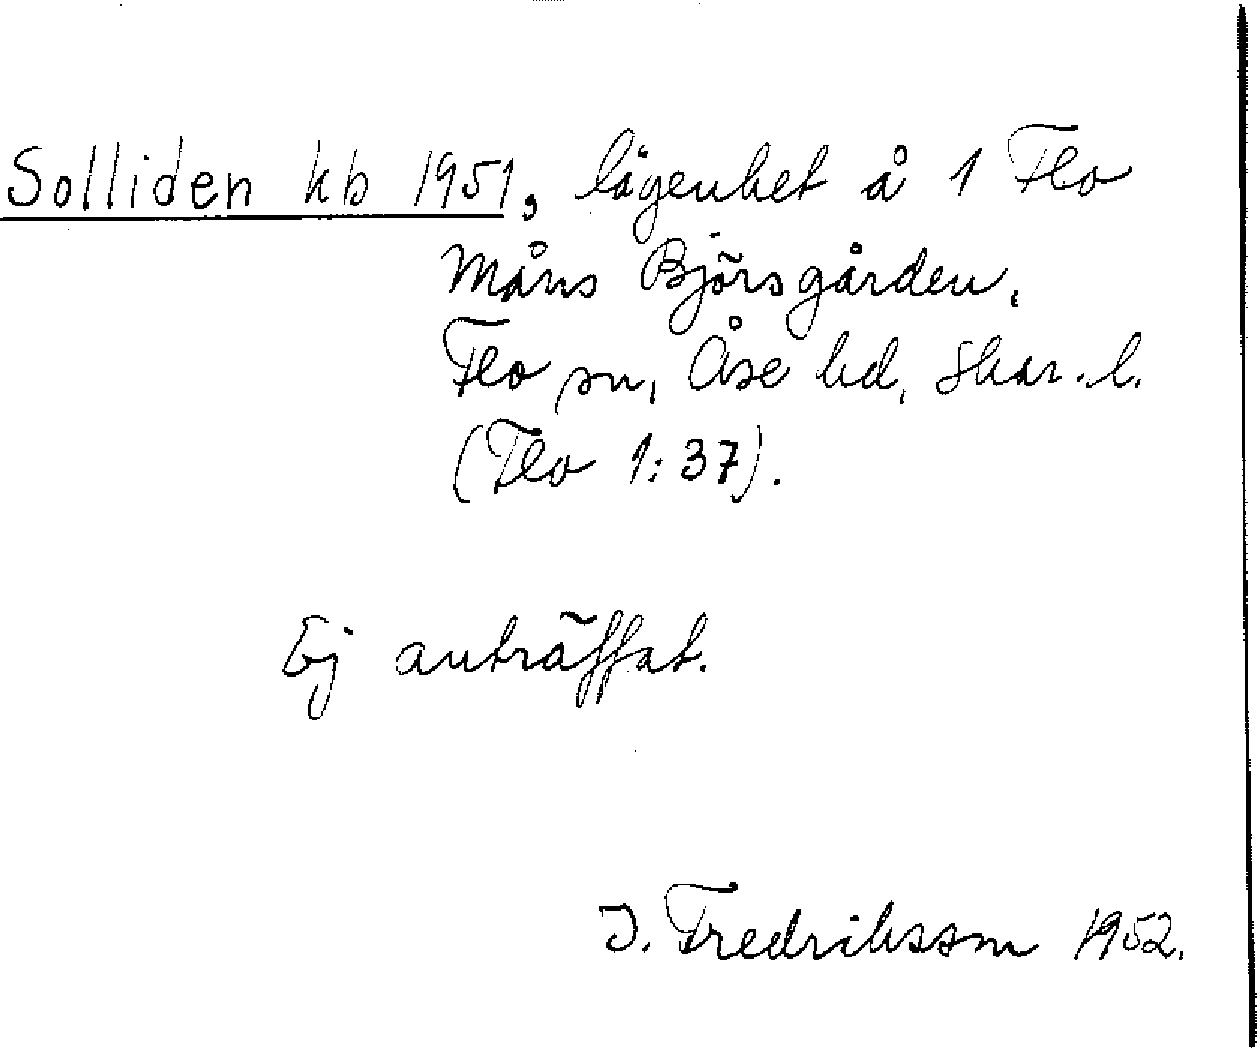 Solliden kb 1951, lägenhet å 1 Flo
Måns Björsgården,
Flo sn, Åse hd, Skar. l.
(Flo 1:37).
Ej anträffat.
I. Fredriksson 1952.